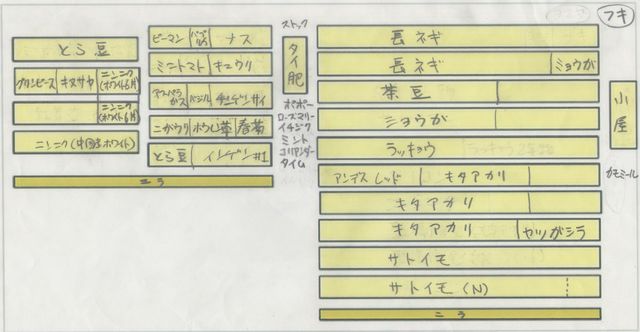 フキ
とら豆
グリンピース キヌサヤ ニンニク(ホワイト6片)
ニンニク(ホワイト6片)
ニンニク(中国ホワイト)
ピーマン ナス
ミニトマト キュウリ
アスパラガス バジル チンゲンサイ
ニガウリ ホウレン草 春菊
とら豆 インゲン#1
ニラ
ストック
タイ肥
ポポー
ローズマリー
イチジク
ミント
コリアンダー
タイム
長ネギ
長ネギ ミョウガ
茶豆
ショウガ
ラッキョウ
アンデスレッド キタアカリ
キタアカリ
キタアカリ ヤツガシラ
サトイモ
サトイモ(N)
ニラ
小屋
カモミール